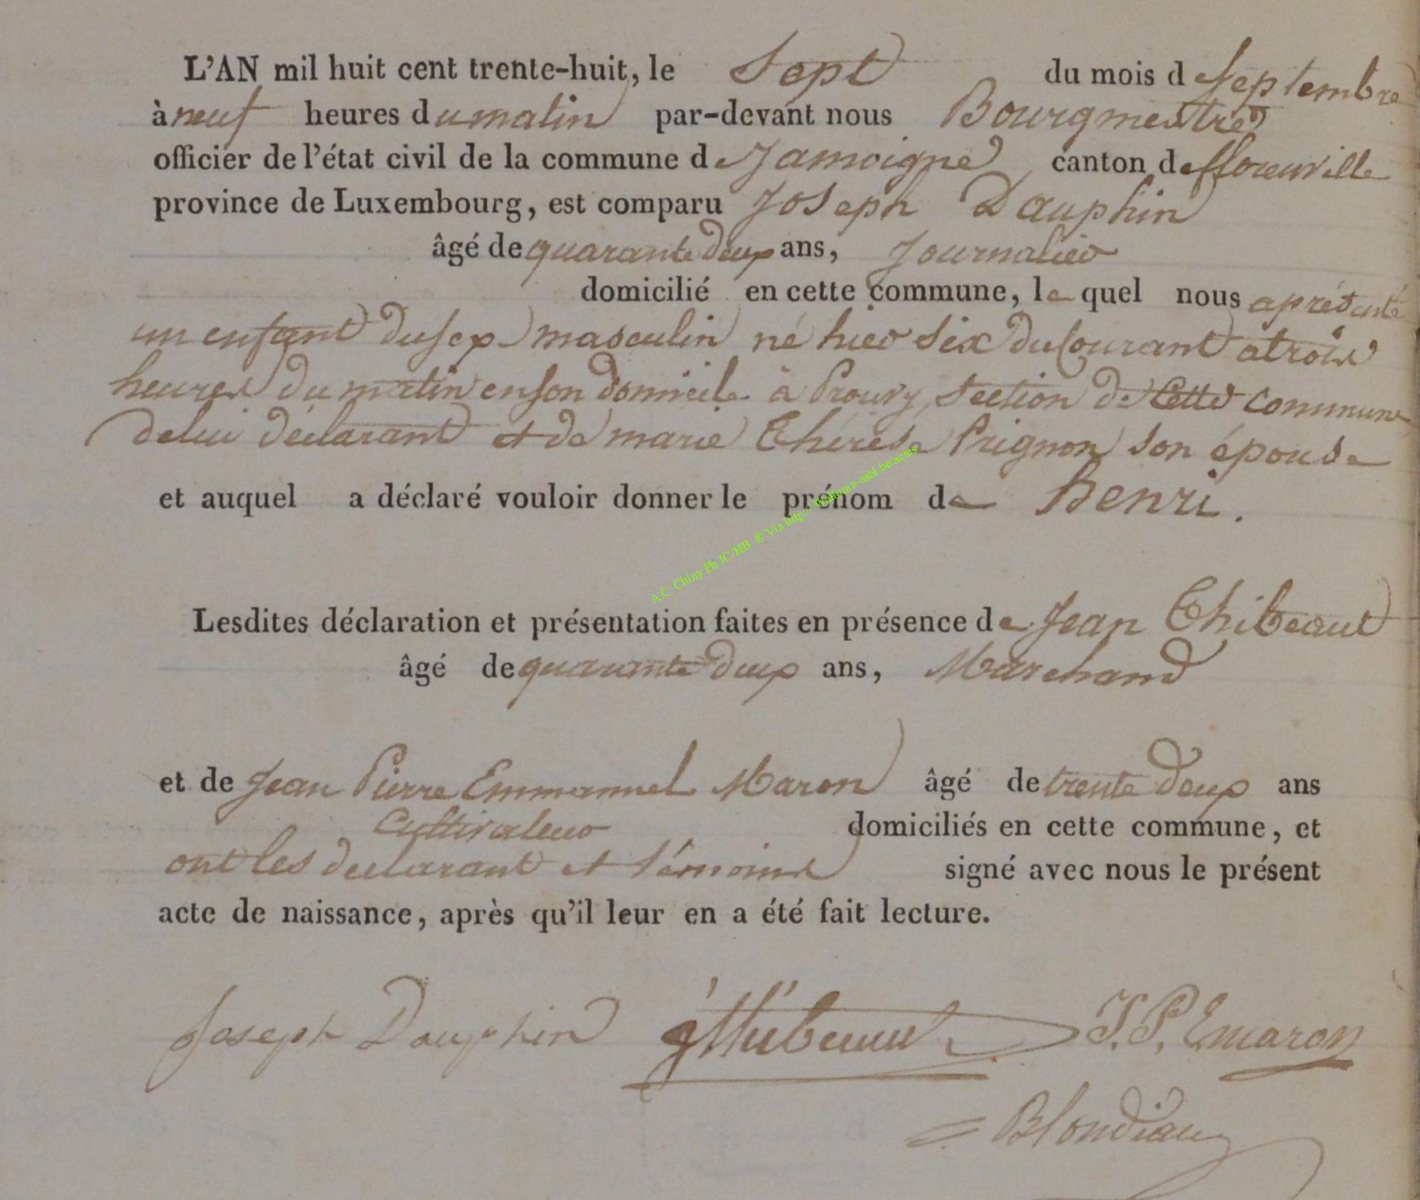 L'AN mil huit cent trente-huit, le Sept du mois de Septembre
à neuf heures du matin par-devant nous Bourgmestre
officier de l'état civil de la commune de Jamoigne canton de fflorenville
province de Luxembourg, est comparu Joseph Dauphin
âgé de quarante deux ans, Journalier
domicilié en cette commune, le quel nous a présenté
un enfant du sex masculin né hier six du Courant a trois
heures du matin en son domicile à Prouvy, Section de Cette Commune
de lui déclarant et de marie Thérèse Prignon son épouse
et auquel a déclaré vouloir donner le prénom de henri.
Lesdites déclaration et présentation faites en présence de Jean Thibeaut
âgé de quarante deux ans, Marchand
et de Jean Pierre Emmanuel Maron âgé de trente deux ans
Cultivateur domiciliés en cette commune, et
ont les declarant et témoins signé avec nous le présent
acte de naissance, après qu'il leur en a été fait lecture.
Joseph Dauphin J Thibeaut J. P. Emaron
Blondiau
A.C. Chiny Ph JC-HB © Via http://